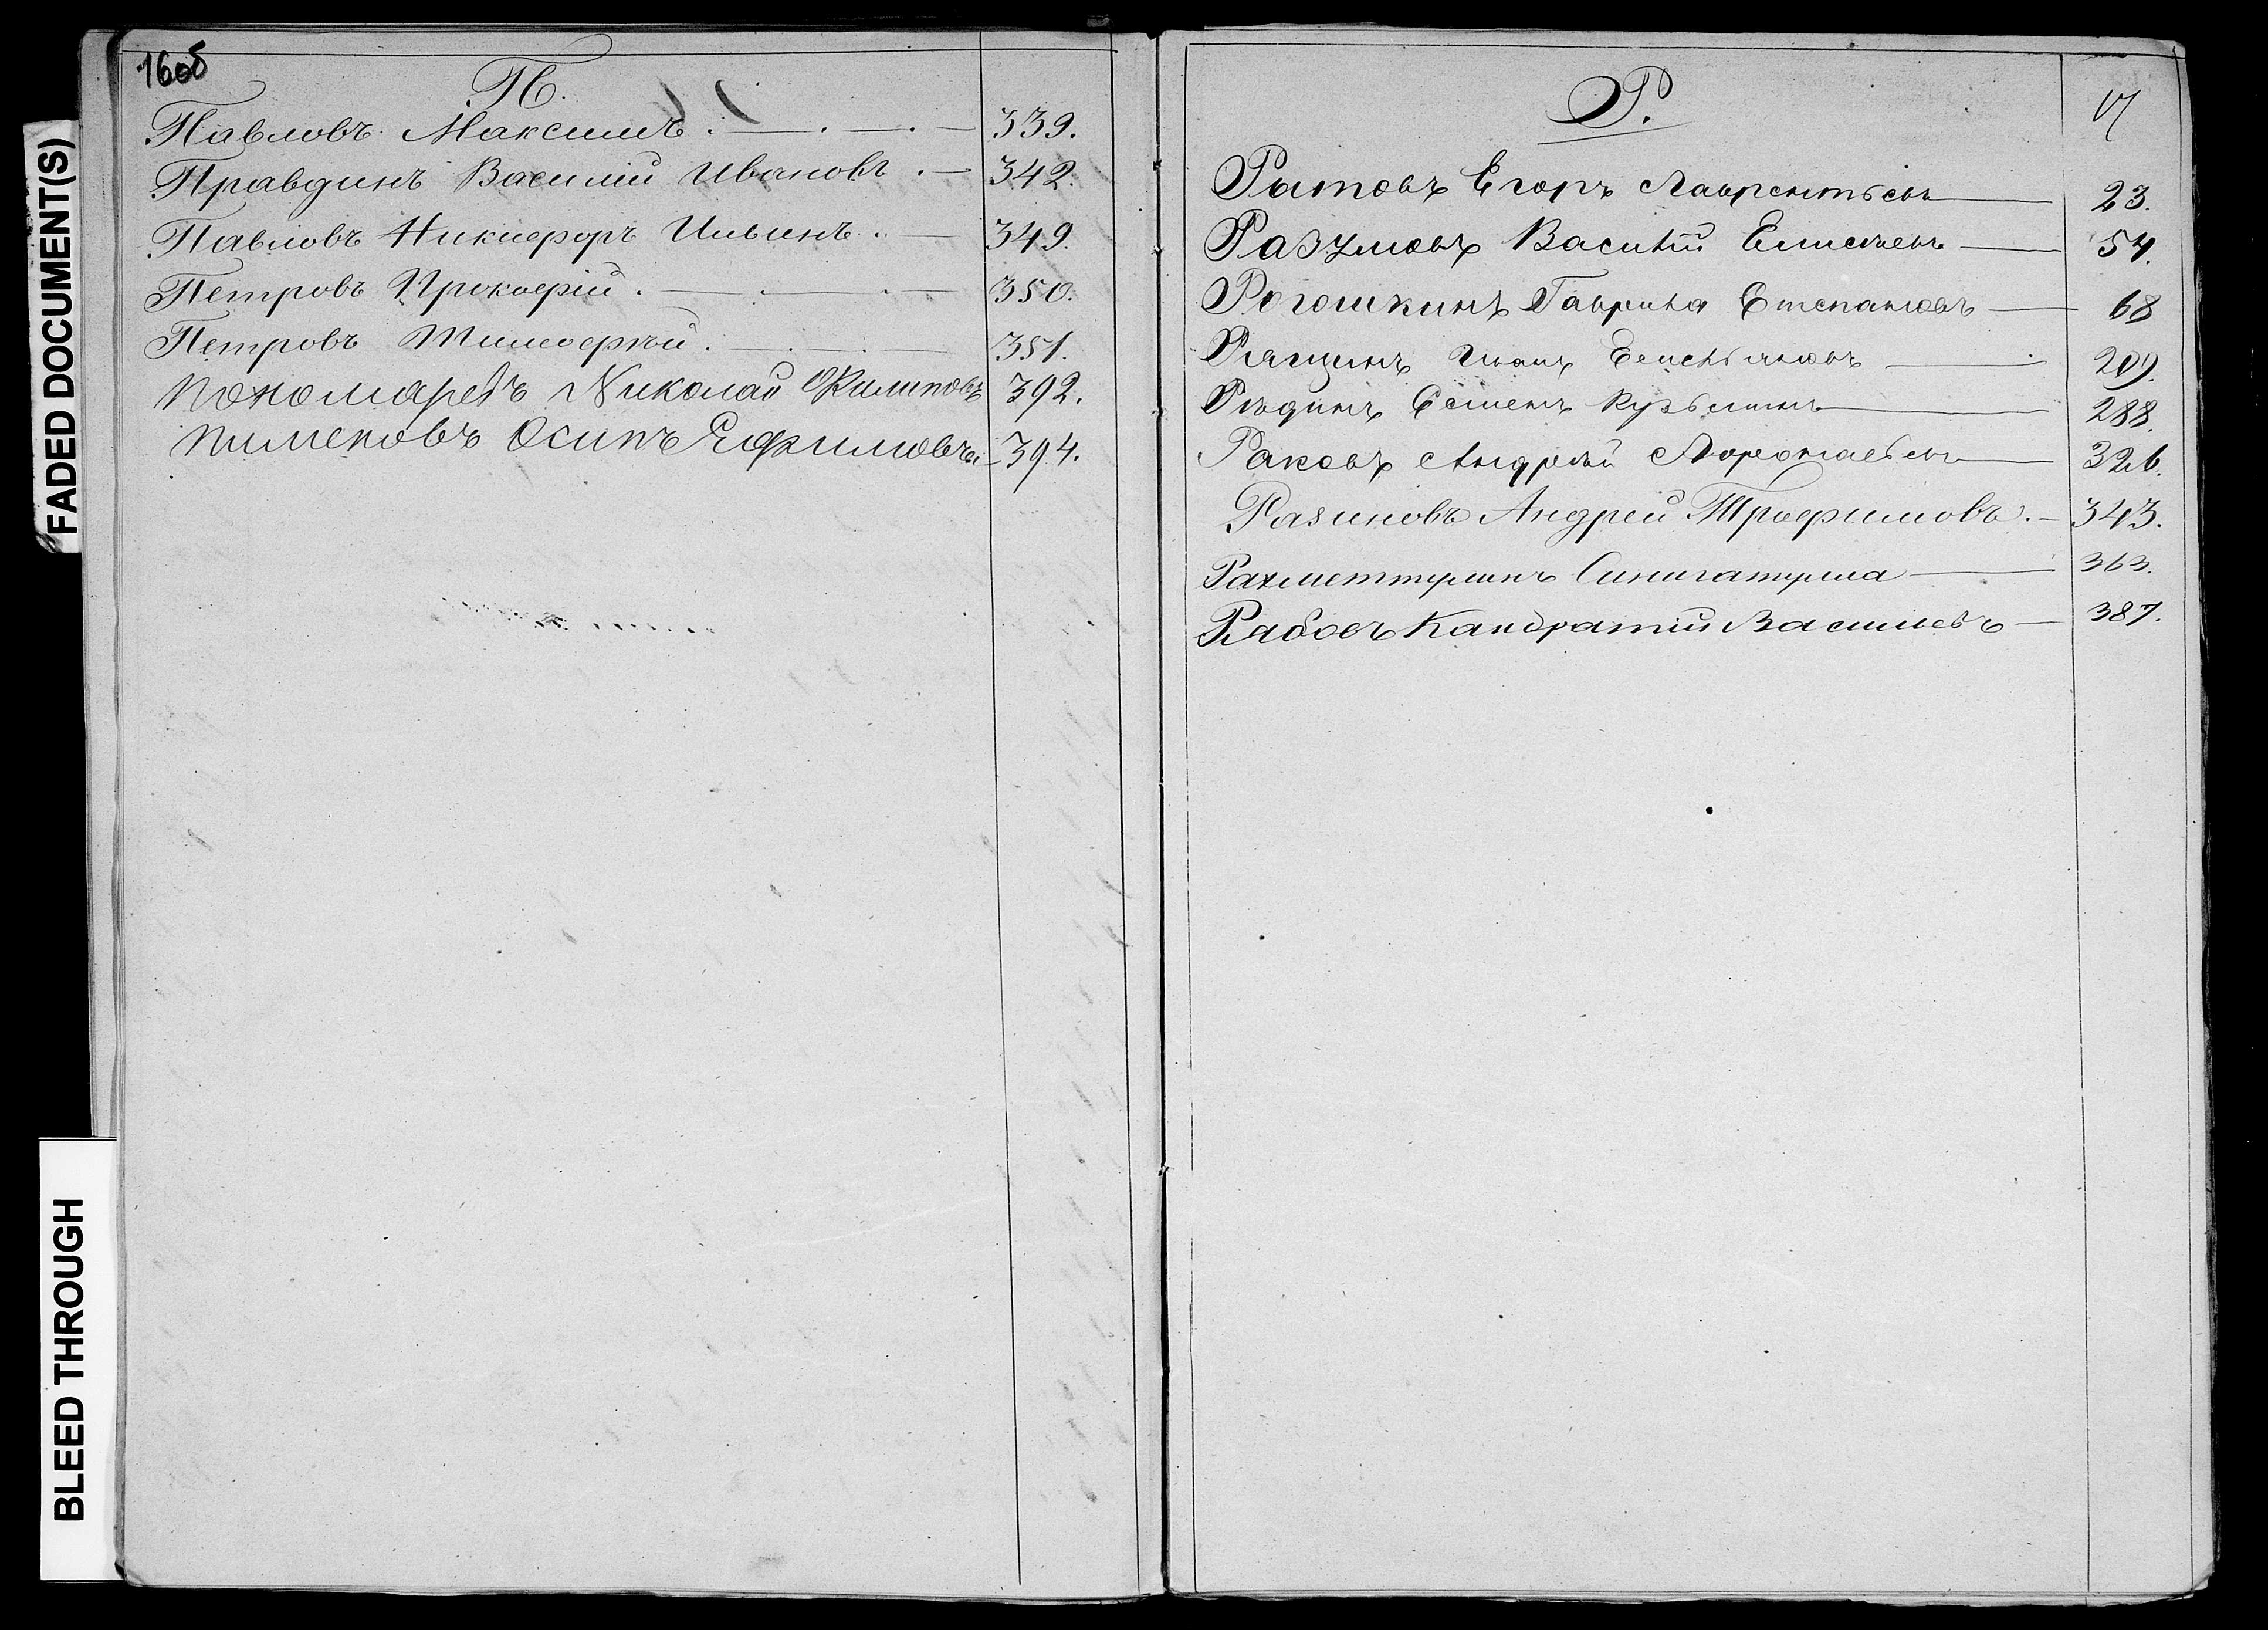 FADED DOCUMENT(S)
BLEED THROUGH
16об
П.
Павловъ Максимъ. — . — . — 339.
Правдинъ Василій Ивановъ . — 342.
Павловъ Никифоръ Ильинъ . — 349.
Петровъ Прокофій . — 350.
Петровъ Тимофѣй . — 351.
Пономаревъ Николай Филиповъ 392.
Пименовъ Осипъ Ефимовъ — 394.
Р.
17
Рытовъ Егоръ Лаврентьевъ — 23.
Разумовъ Василій Елисѣевъ — 54.
Рогошкинъ Гаврила Степановъ — 68
Рящинъ Иванъ Емельяновъ — 209.
Рѣдинъ Семенъ Кузьминъ — 288.
Раковъ Андрѣй — 326.
Разиновъ Андрей Трофимовъ . — 343.
Рахметтулинъ — 363.
Рябовъ Кандратій Василиевъ — 387.